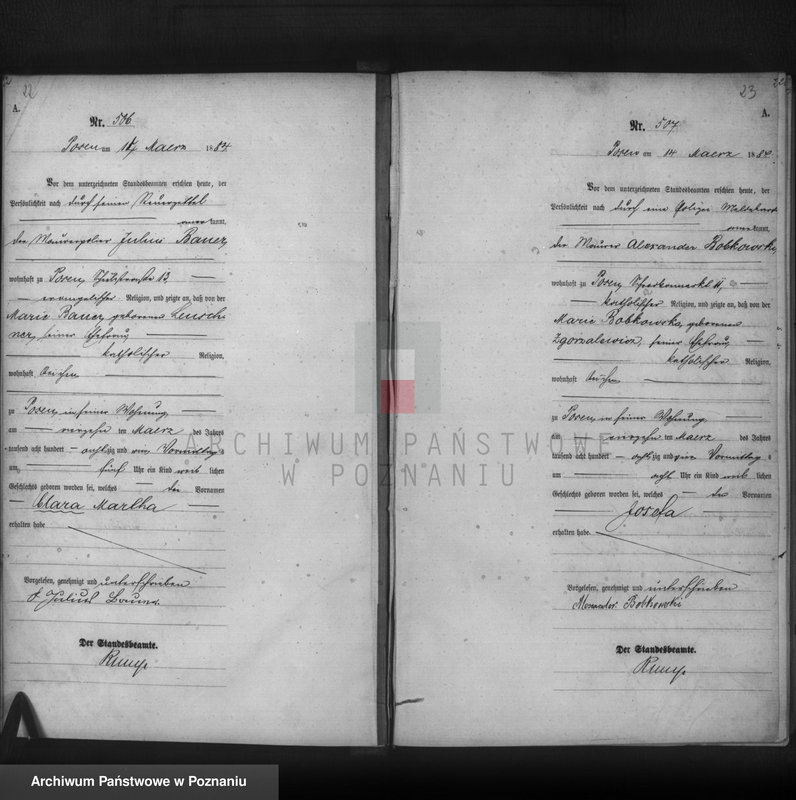 22
A.
Nr. 506
Posen am 14 Maerz 1884
Vor dem unterzeichneten Standesbeamten erschien heute, der
Persönlichkeit nach durch seinen Steuerzettel
kannt,
der Maurerpolier Julius
wohnhaft zu Posen, 13,
evangelischer Religion, und zeigte an, daß von der
Marie geborenen
seiner Ehefrau,
katholischer Religion,
wohnhaft bei ihm
zu Posen in seiner Wohnung
am vierzehn ten Maerz des Jahres
tausend acht hundert achtzig und vier Vormittags
um fünf Uhr ein Kind weib lichen
Geschlechts geboren worden sei, welches die Vornamen
Clara Martha
erhalten habe
Vorgelesen, genehmigt und unterschrieben
Julius
Der Standesbeamte.
23
A.
Nr. 507
Posen am 14 Maerz 1884
Vor dem unterzeichneten Standesbeamten erschien heute, der
Persönlichkeit nach durch eine Polizei Meldekarte
kannt,
der Maurer Alexander Bobkowski,
wohnhaft zu Posen, 11,
katholischer Religion, und zeigte an, daß von der
Marie Bobkowska, geborenen
Zgorzalewicz, seiner Ehefrau,
katholischer Religion,
wohnhaft bei ihm
zu Posen in seiner Wohnung
am vierzehn ten Maerz des Jahres
tausend acht hundert achtzig und vier Vormittags
um acht Uhr ein Kind weib lichen
Geschlechts geboren worden sei, welches den Vornamen
Josefa
erhalten habe.
Vorgelesen, genehmigt und unterschrieben
Alexander Bobkowski
Der Standesbeamte.
ARCHIWUM PAŃSTWOWE
W POZNANIU
Archiwum Państwowe w Poznaniu